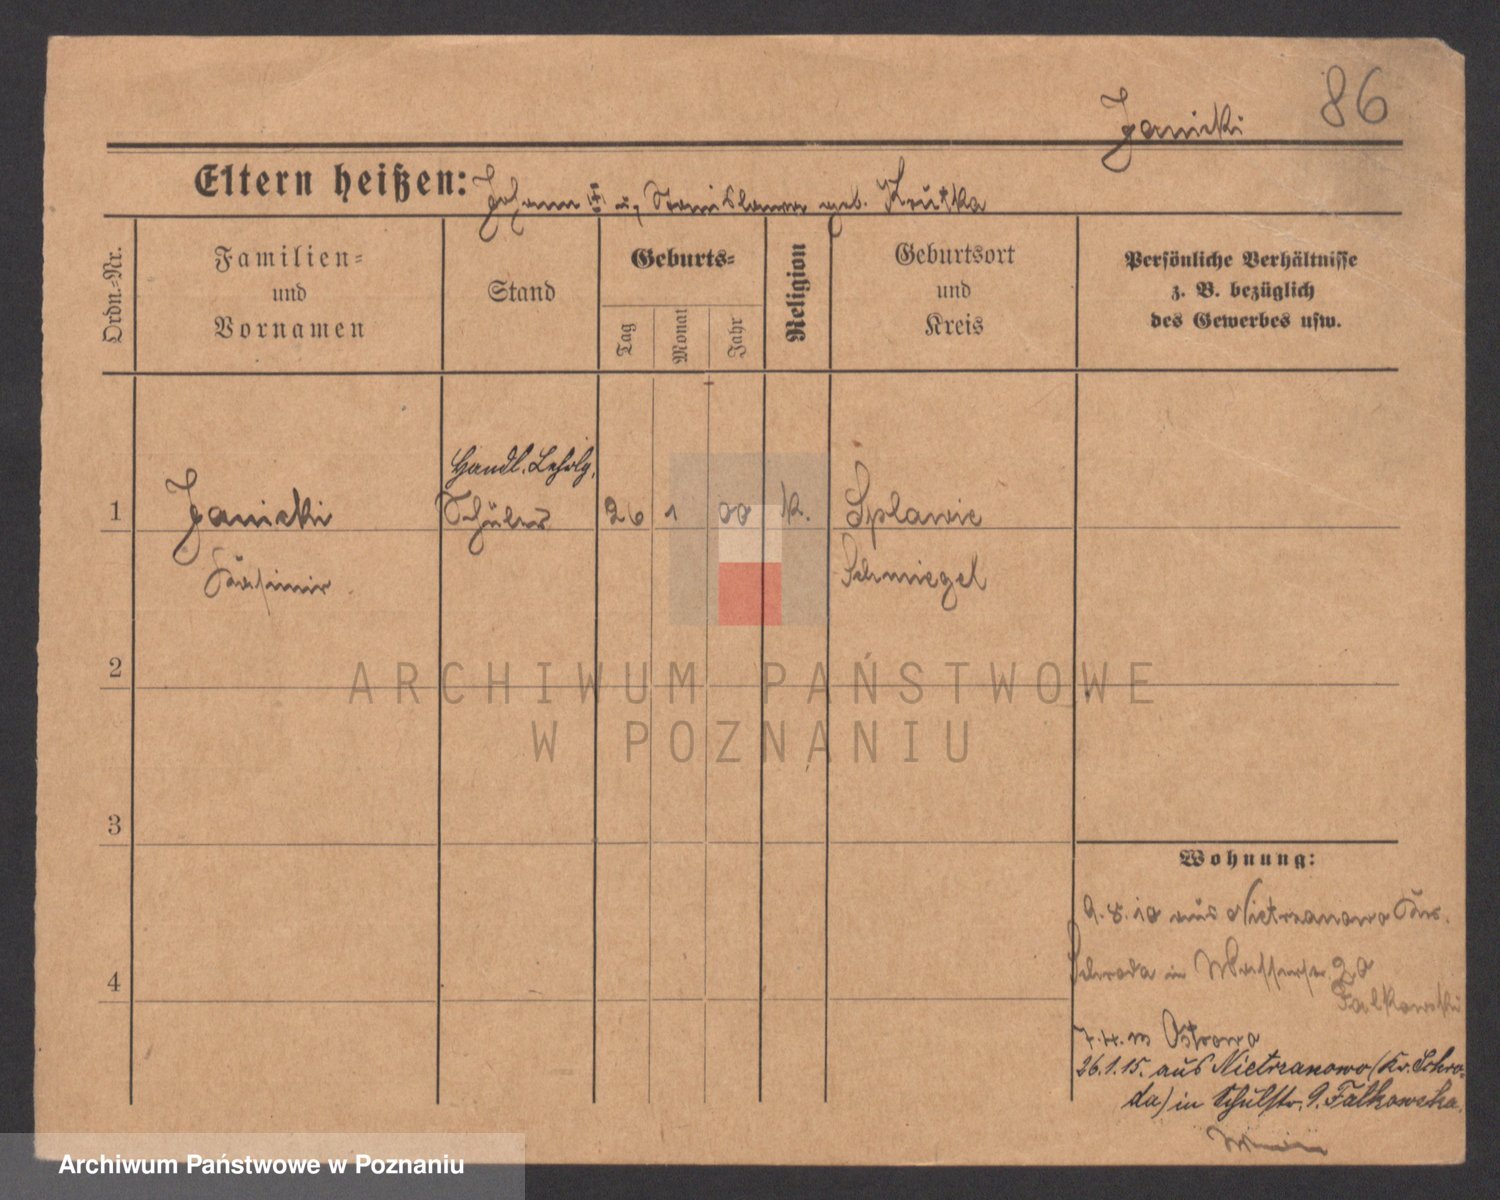 86
Janicki
Eltern heißen: Johann III u. Stanislawa geb. Krutka
Ordn.-Nr.
Familien-
und
Vornamen
Stand
Geburts-
Tag
Monat
Jahr
Religion
Geburtsort
und
Kreis
Persönliche Verhältnisse
z. B. bezüglich
des Gewerbes usw.
Handl. Lehrlg.
1 Janicki Schüler 26 1 00 k. Splawie
Kasimir Schmiegel
2
ARCHIWUM PAŃSTWOWE
W POZNANIU
3
Wohnung:
9.8.10 aus Nietrzanowo Krs.
Schroda in Wasserstr. 20
Falkowski
Ostrowo
26.1.15. aus Nietrzanowo (Kr. Schro-
da) in Schulstr. 9. Falkowska
4
Archiwum Państwowe w Poznaniu